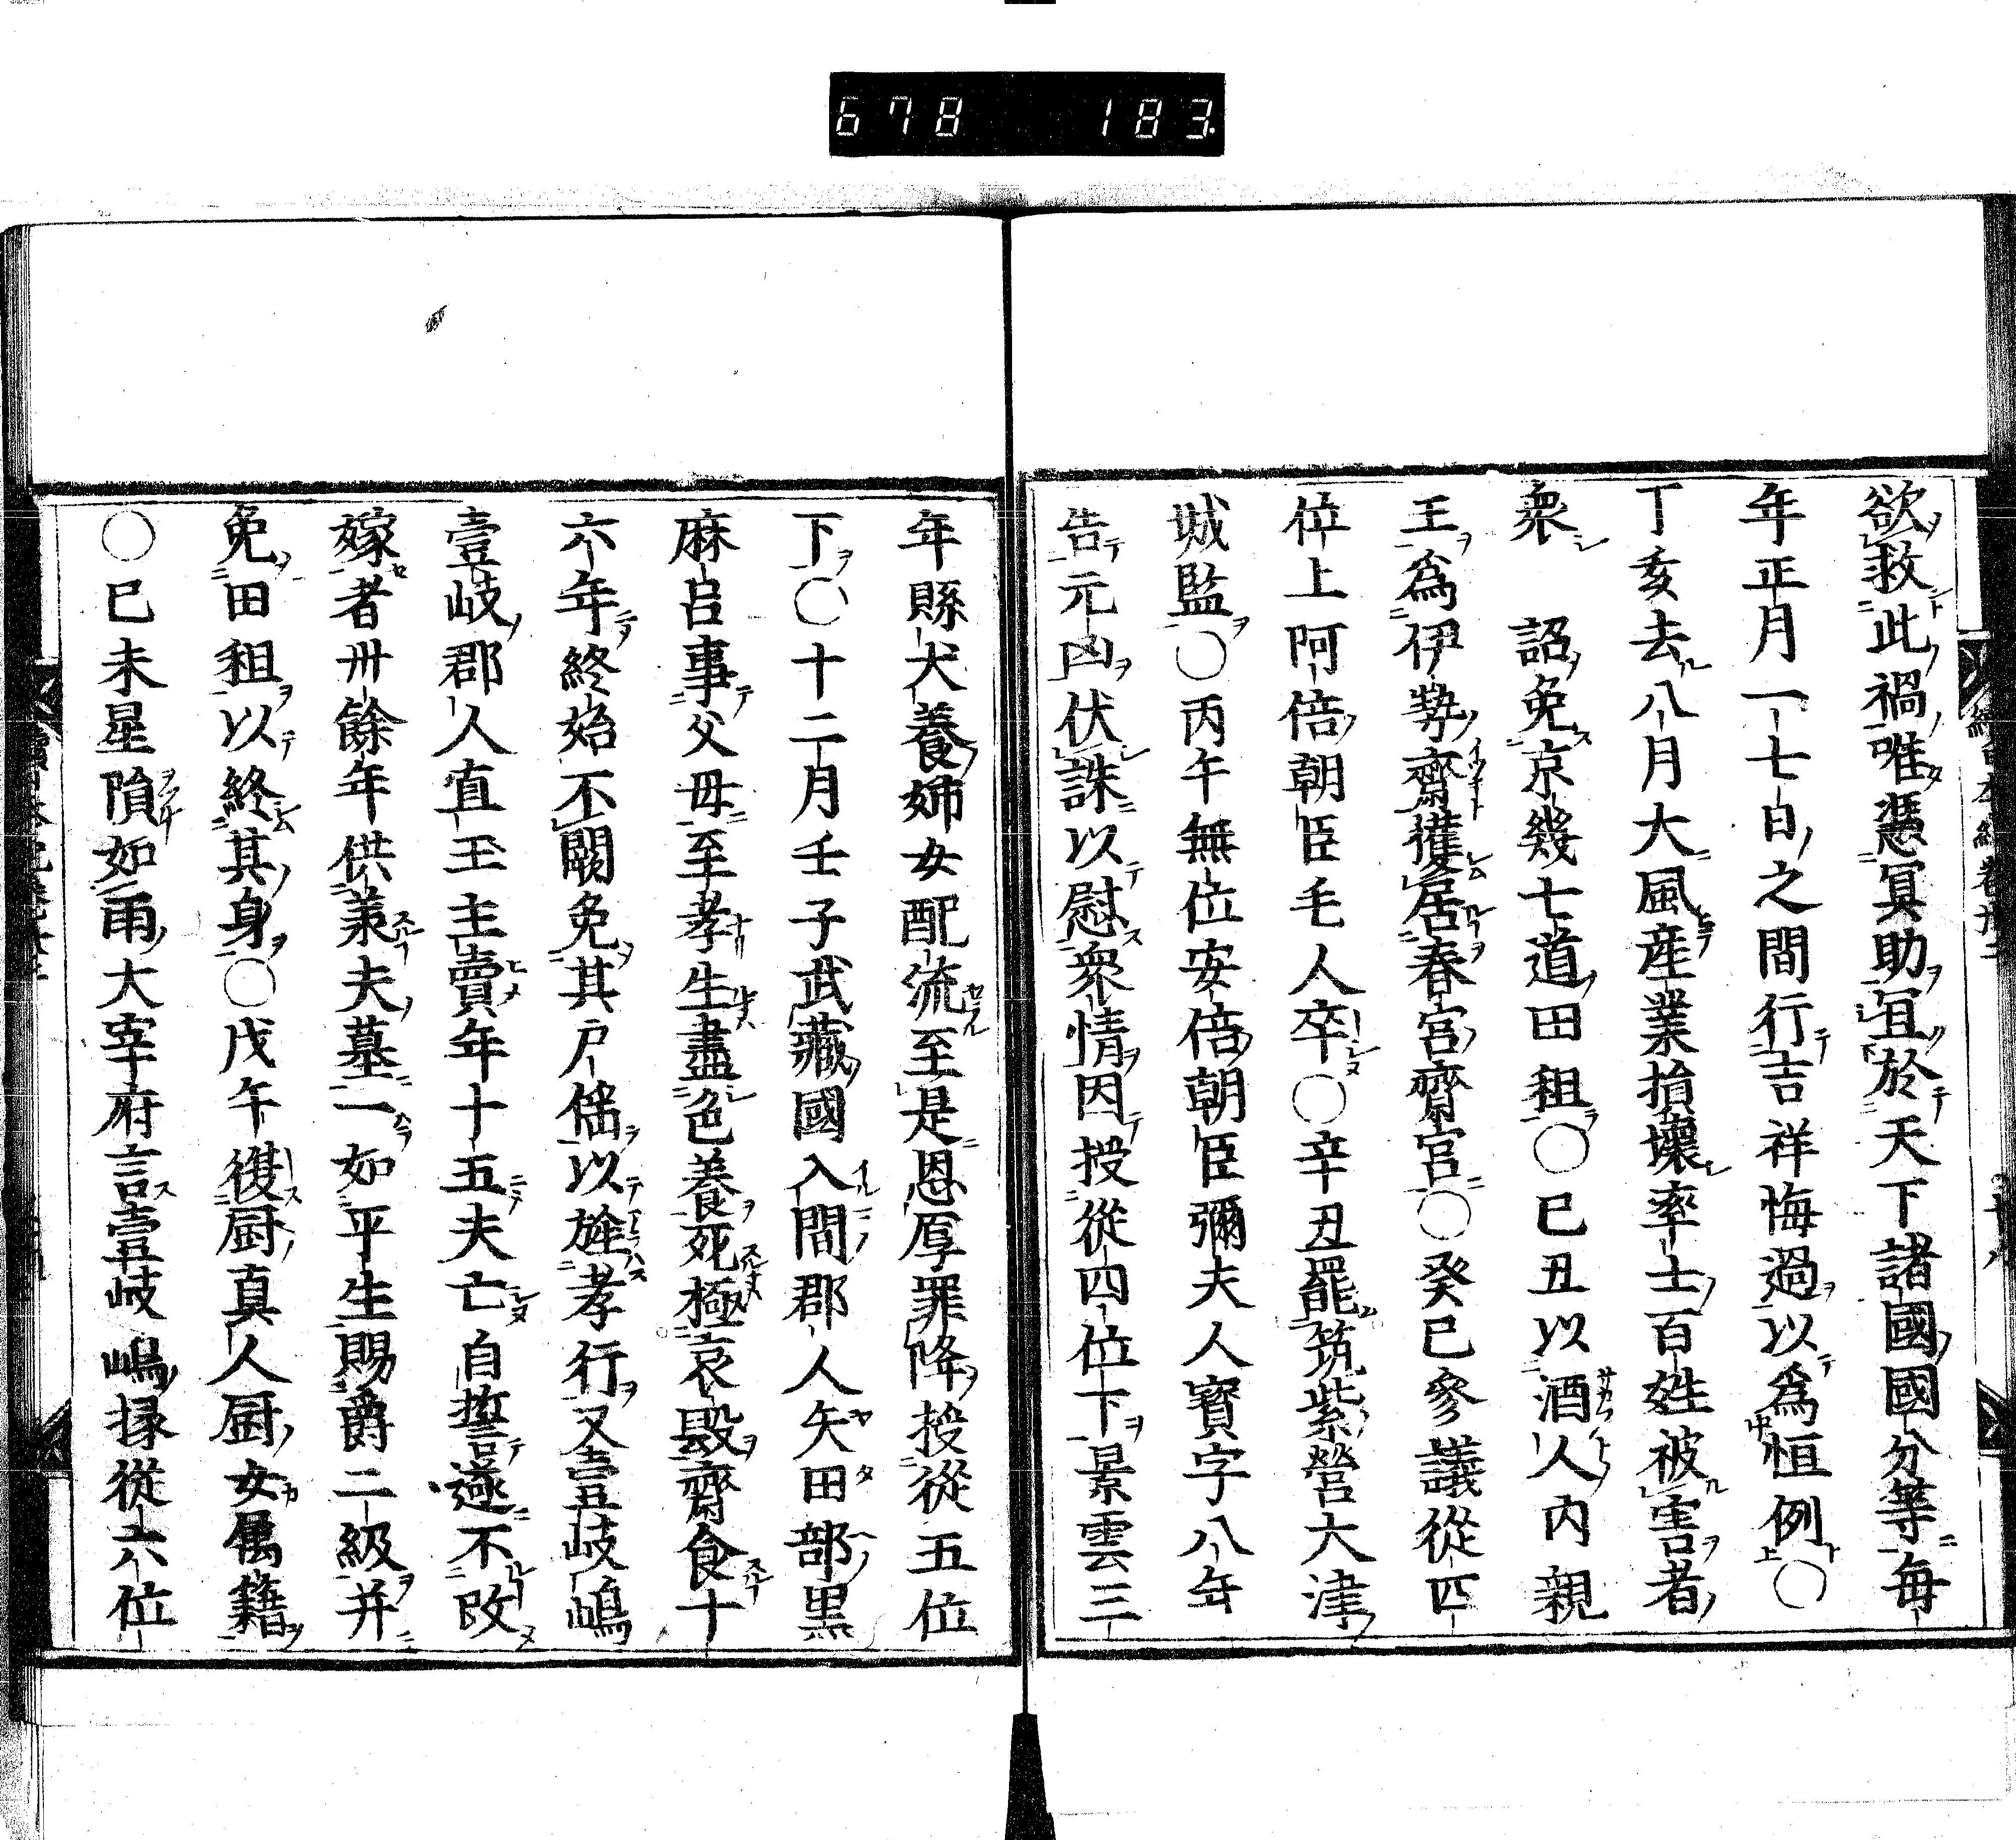 678 183
欲救此禍唯憑冥助宜於天下諸國國分等毎
年正月一七日之間行吉祥悔過以爲恒例○
丁亥去八月大風産業損壞率土百姓被害者
衆 詔免京幾七道田租○巳丑以酒人内親
王爲伊勢齋權居春宮齋宮○癸巳參議從四
位上阿倍朝臣毛人卒○辛丑罷筑紫營大津
城監○丙午無位安倍朝臣彌夫人寳字八年
告元凶伏誅以慰衆情因授從四位下景雲三
年縣犬養姉女配流至是恩厚罪降授從五位
下○十二月壬子武藏國入間郡人矢田部黒
麻呂事父母至孝生盡色養死極哀毀齋食十
六年終始不闕免其戸徭以旌孝行又壹岐嶋
壹岐郡人直玉主賣年十五夫亡自誓遂不改
嫁者卅餘年供羕夫墓一如平生賜爵二級并
免田租以終其身○戊午復厨真人厨女属籍
○巳未星隕如雨大宰府言壹岐嶋掾從六位